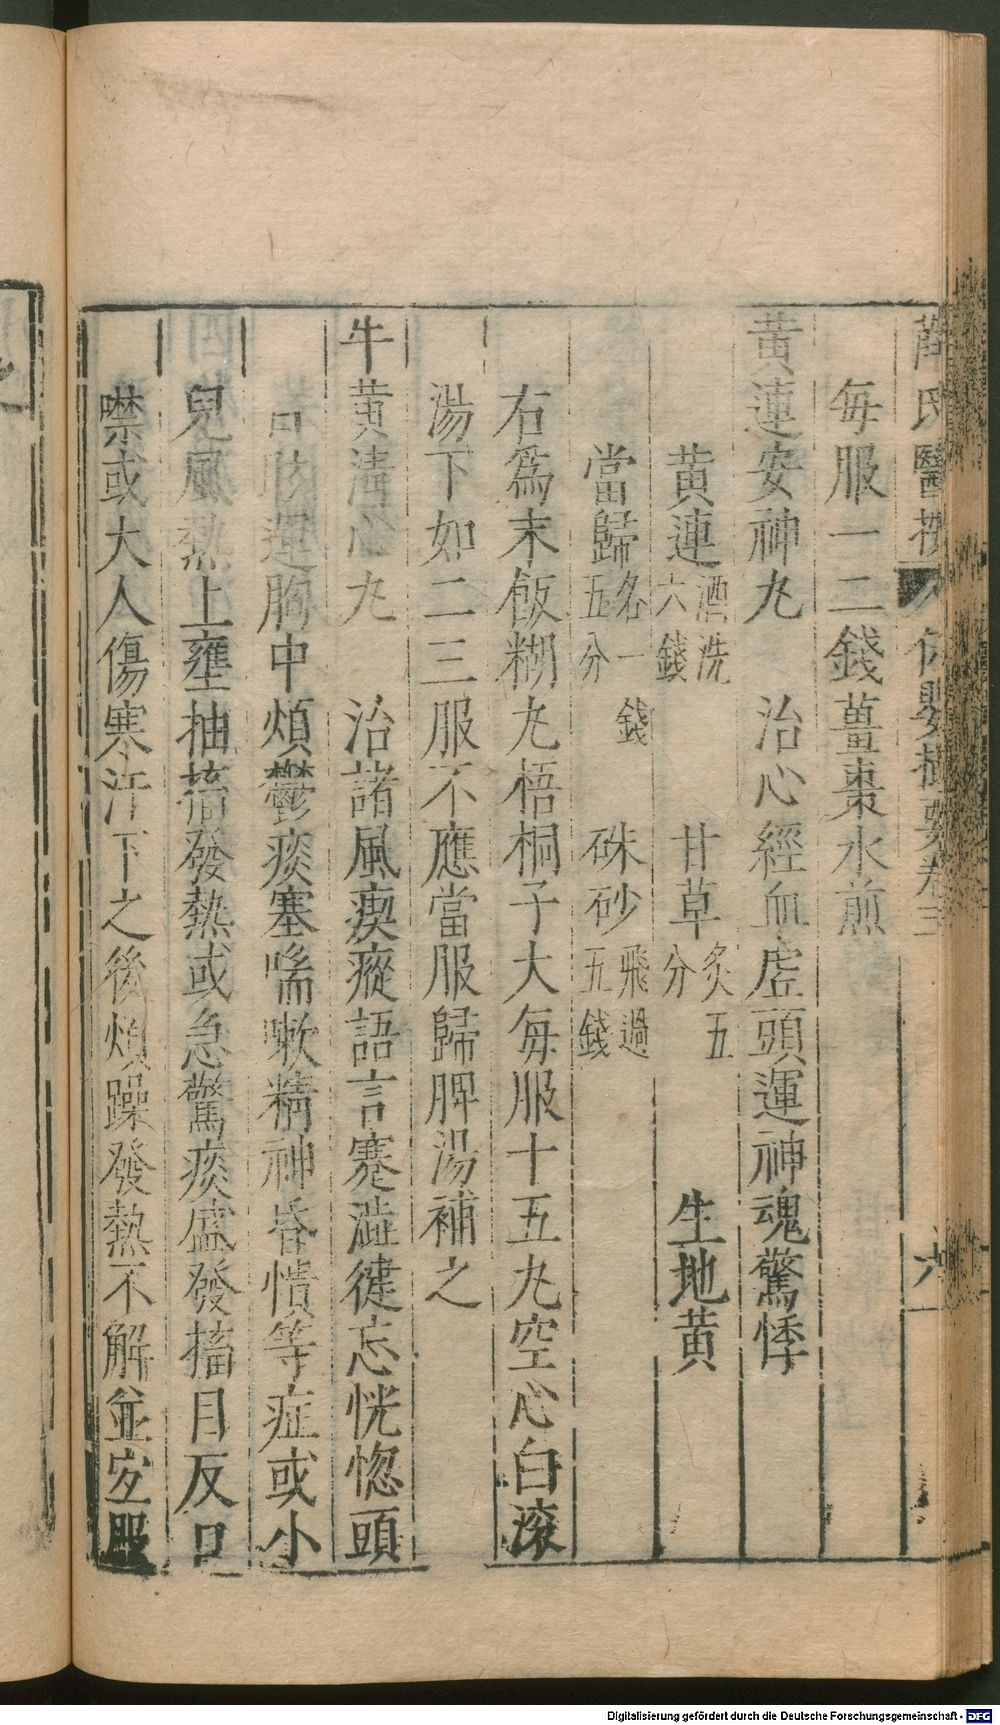 薛氏醫按 保嬰撮要卷三 六
每服一二錢薑棗水煎
黃連安神丸 治心經血虛頭運神魂驚悸
黃連酒洗六錢 甘草炙五分 生地黃
當歸各一錢五分 硃砂飛過五錢
右爲末飯糊丸梧桐子大每服十五丸空心白滚
湯下如二三服不應當服歸脾湯補之
牛黃清心丸 治諸風瘈瘲語言蹇澁健忘恍惚頭
運胸中煩鬱痰塞喘嗽精神昏憒等症或小
兒風熱上壅抽搐發熱或急驚痰盛發搐目反口
噤或大人傷寒汗下之後煩躁發熱不解並宜服
Digitalisierung gefördert durch die Deutsche Forschungsgemeinschaft - DFG